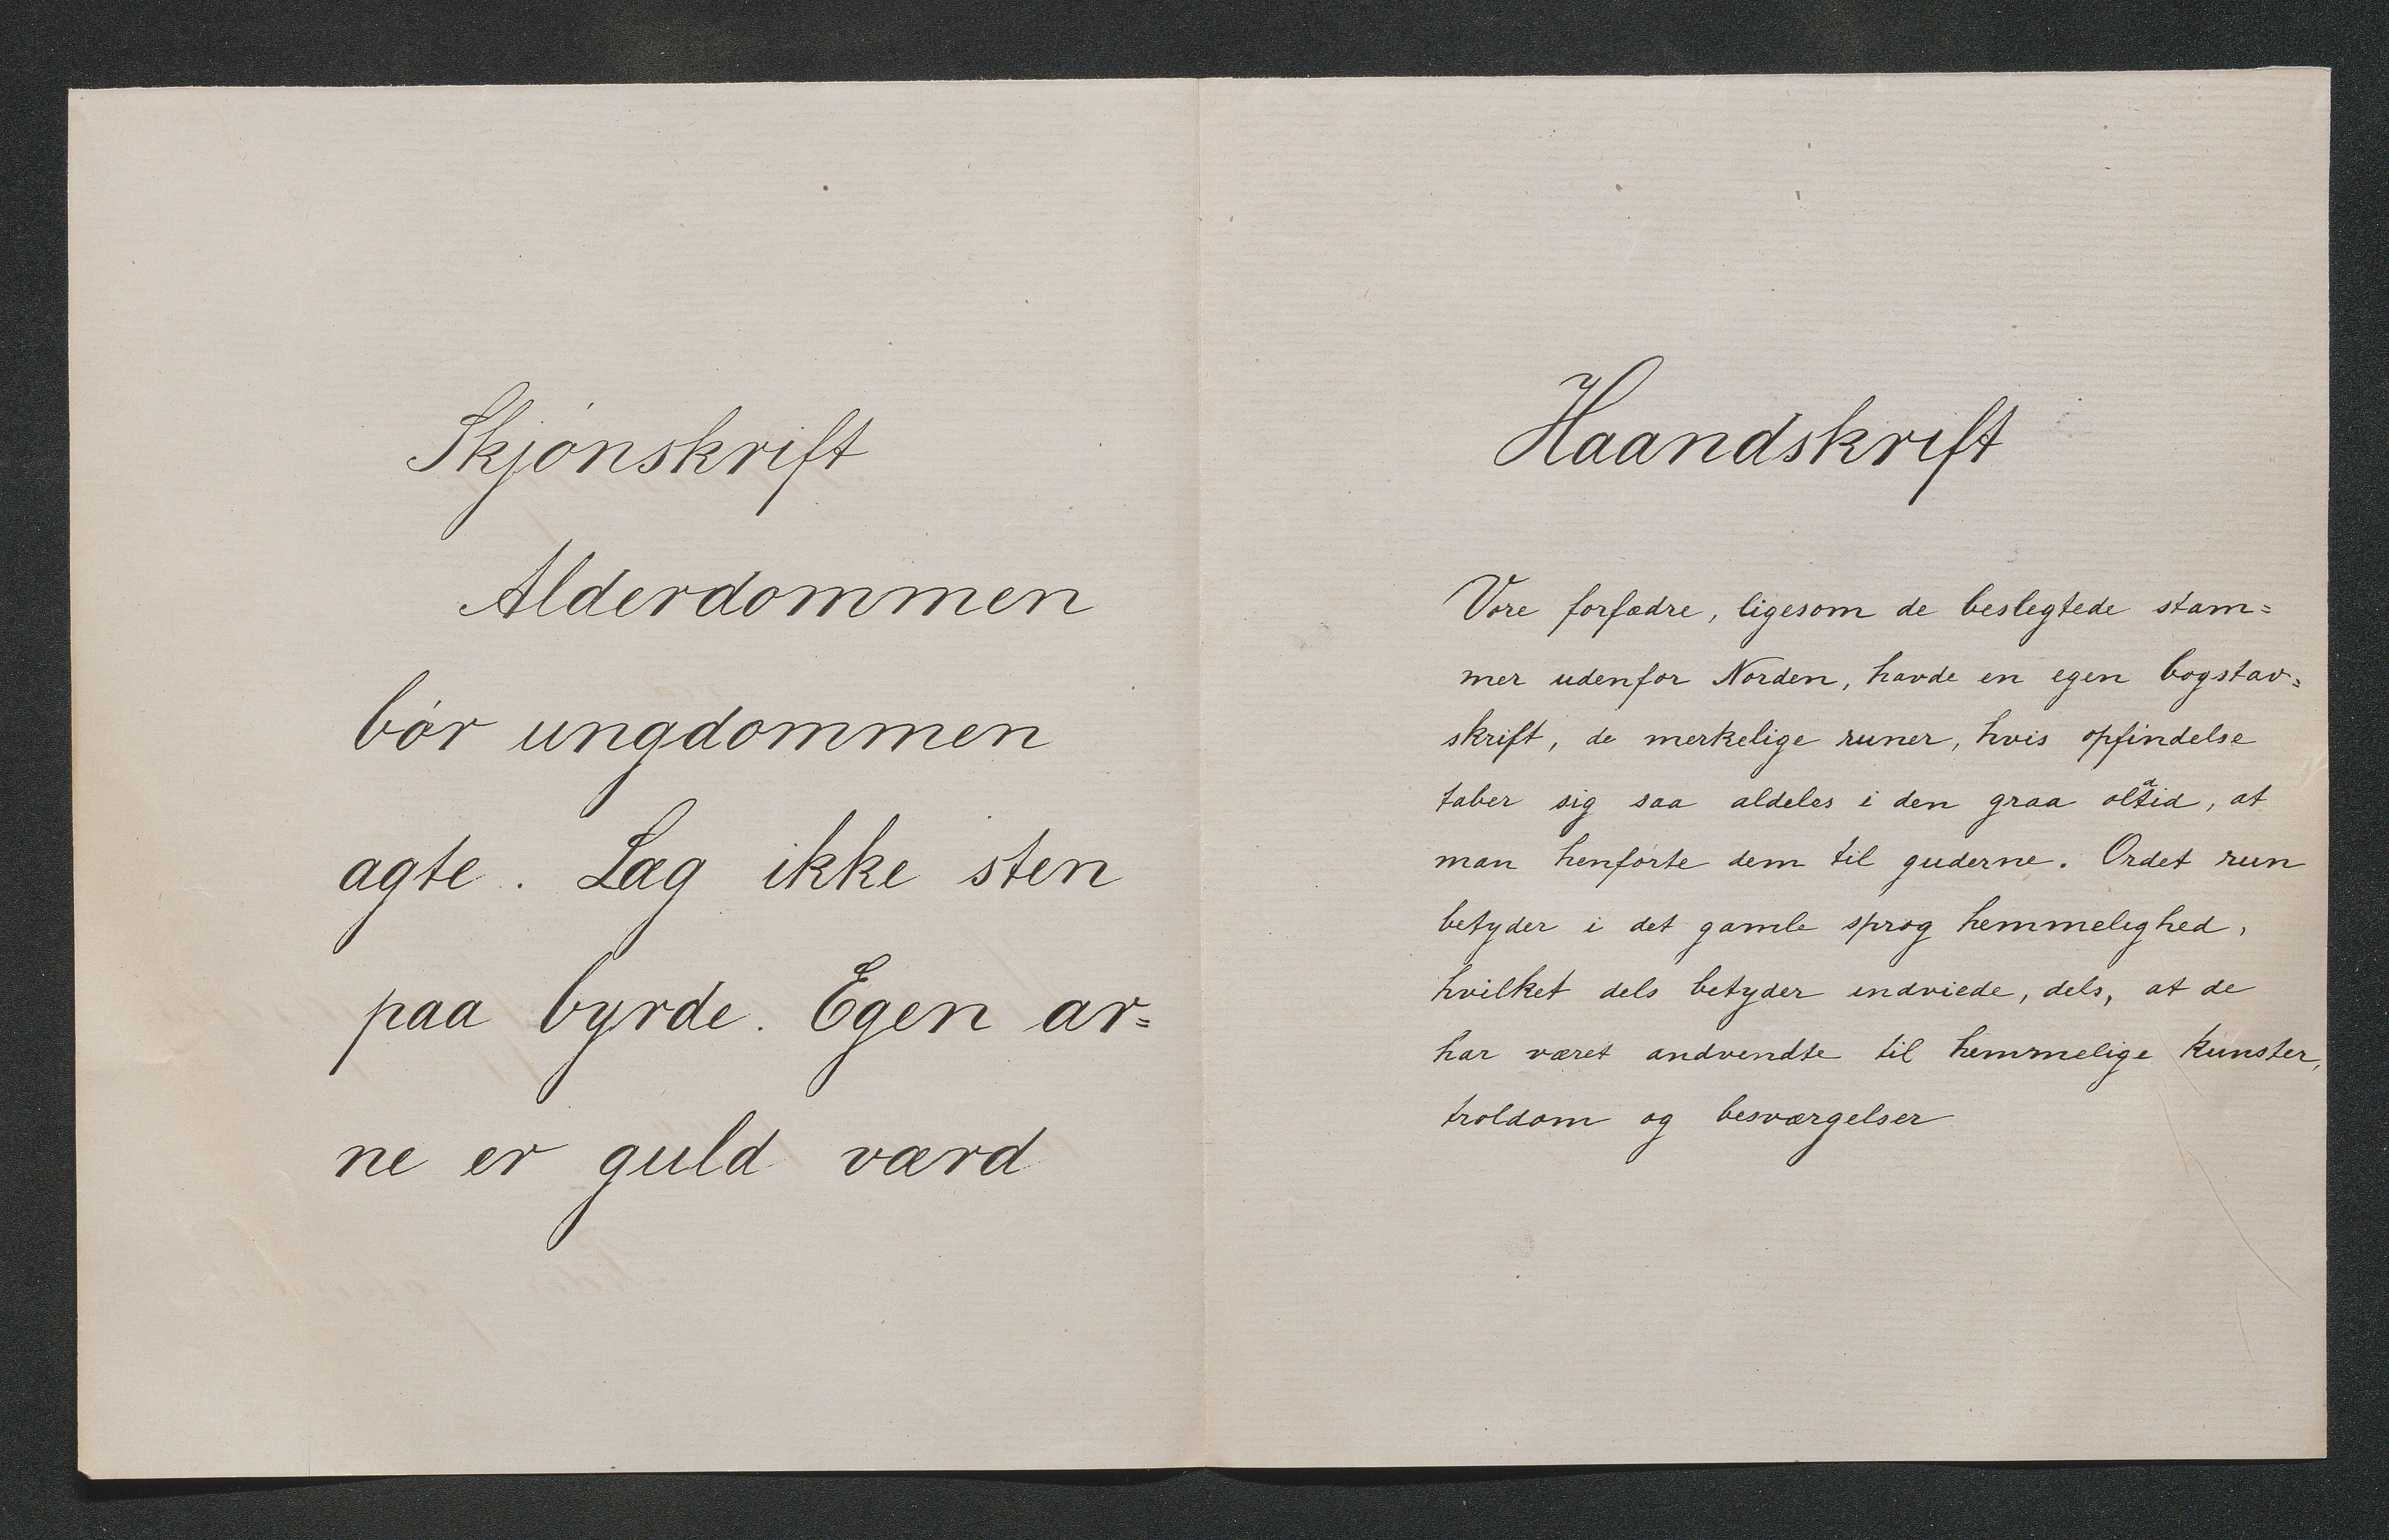 Skjónskrift
Alderdommen
bór ungdommen
agte. Læg ikke sten
paa byrde. Egen ar=
ne er guld værd
Haandskrift
Vore forfædre, ligesom de beslegtede stam=
mer udenfor Norden, havde en egen bogstav=
skrift, de merkelige runer, hvis opfindelse
taber sig saa aldeles i den graa oldtid, at
man henfórte dem til guderne. Ordet run
betyder i det gamle sprog hemmelighed,
hvilket dels betyder indviede, dels, at de
har været andvendte til hemmelige kunster,
troldom og besværgelser